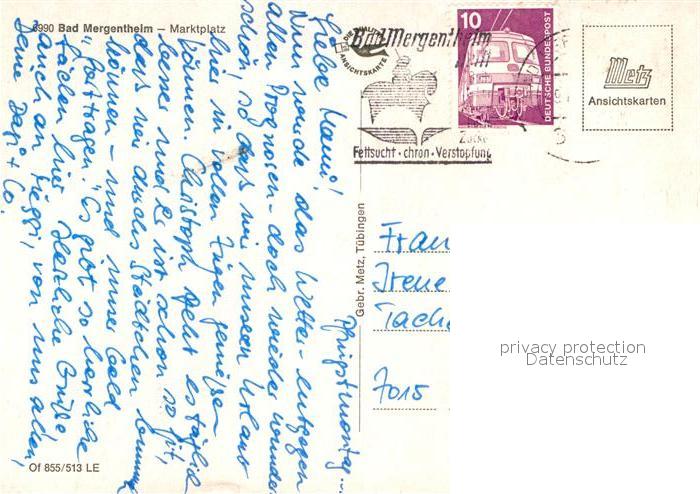 6990 Bad Mergentheim – Marktplatz
Pfingstmontag...
Liebe Mami!
Nun wurde das Wetter - entgegen
allen Prognosen - doch wieder wunder
schön, so dass wir unseren Urlaub
hier in vollen Zügen genießen
können. Christoph geht es täglich
besser und es ist schon so gut,
dass wir durchs Städtchen bummeln
können - und unser Geld
"forttragen". Es gibt so herrliche
Sachen hier. Herzliche Grüße
auch an von uns allen,
Deine Dagi + Co.
Of 855/513 LE
Gebr. Metz, Tübingen
ANSICHTSKARTE
Bad Mergentheim
Fettsucht · chron · Verstopfung
10
DEUTSCHE BUNDESPOST
Metz
Ansichtskarten
Frau
Irene
Tach
7015
privacy protection
Datenschutz